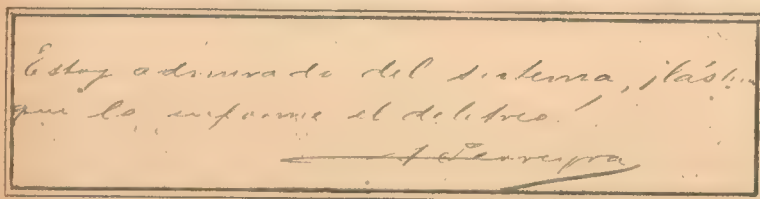 Estoy admirado del sistema, ¡lástima
que lo informe el deletreo!